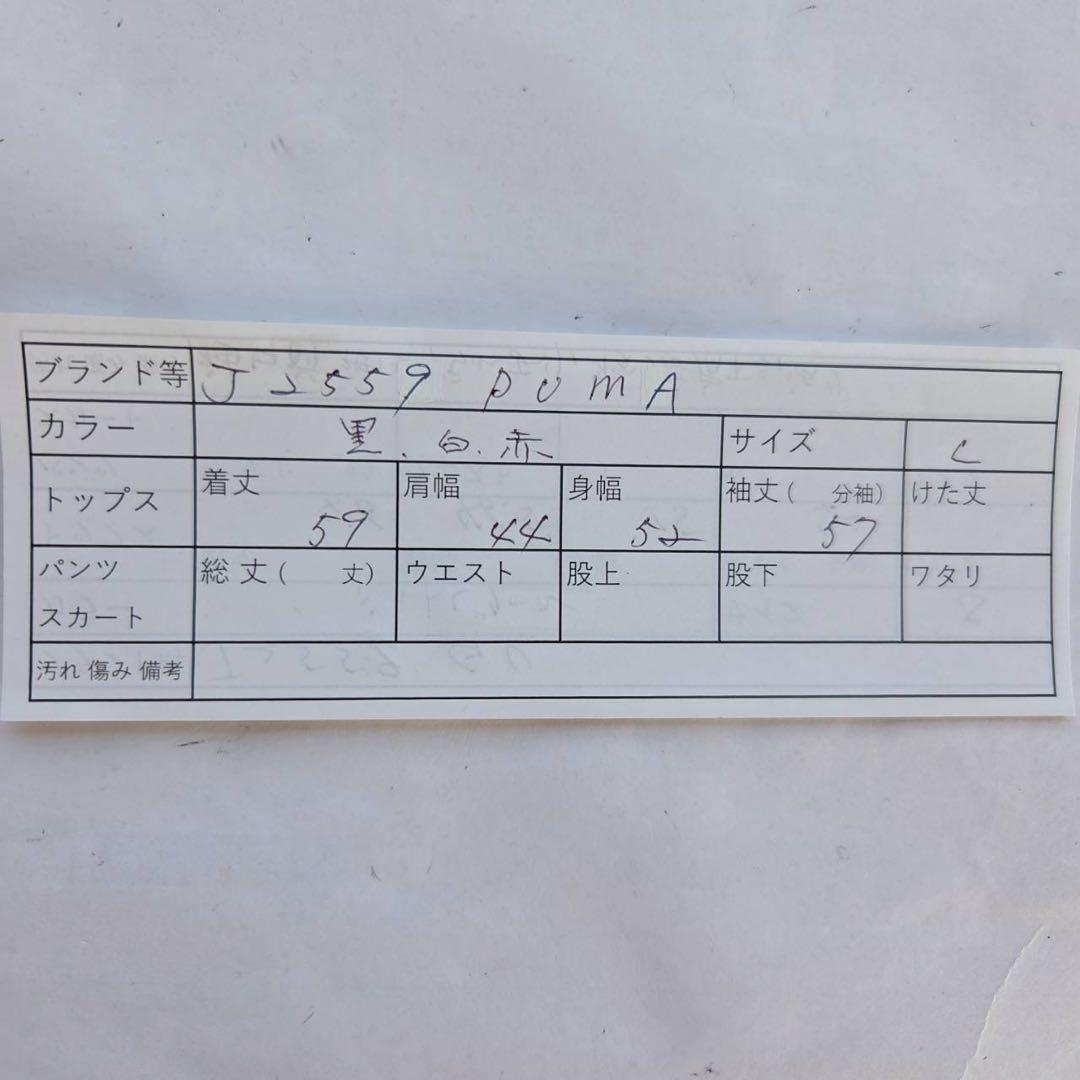 ブランド等 J2559 PUMA
カラー 黒、白、赤 サイズ L
トップス 着丈 59 肩幅 44 身幅 52 袖丈(　分袖) 57 けた丈
パンツ スカート 総丈(　丈) ウエスト 股上 股下 ワタリ
汚れ 傷み 備考